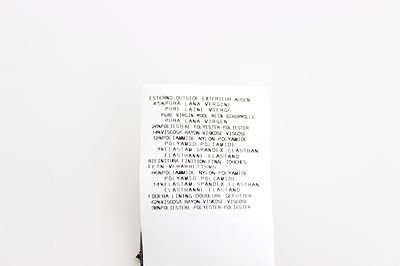 ESTERNO-OUTSIDE-EXTERIEUR-AUSEN
45%PURA LANA VERGINE
PURE LAINE VIERGE
PURE VIRGIN WOOL REIN SCHURWOLLE
PURA LANA VIRGEN
26%POLIESTERE POLYESTER-POLIESTER
14%VISCOSA-RAYON-VISKOSE-VISCOSE
12%POLIAMMIDE-NYLON-POLYAMIDE
POLYAMID-POLIAMIDE
3%ELASTAM-SPANDEX-ELASTHAN
ELASTHANNE-ELASTAND
RIFINITURA FINITION FINAL TOUCHES
FEIN VERARBEITUNG
86%POLIAMMIDE-NYLON-POLYAMIDE
POLYAMID-POLIAMIDE
14%ELASTAM-SPANDEX-ELASTHAN
ELASTHANNE ELASTAND
FODERA-LINING-DOUBLURE GEFUTTER
62%VISCOSA-RAYON-VISKOSE-VISCOSE
38%POLIESTERE-POLYESTER-POLIESTER